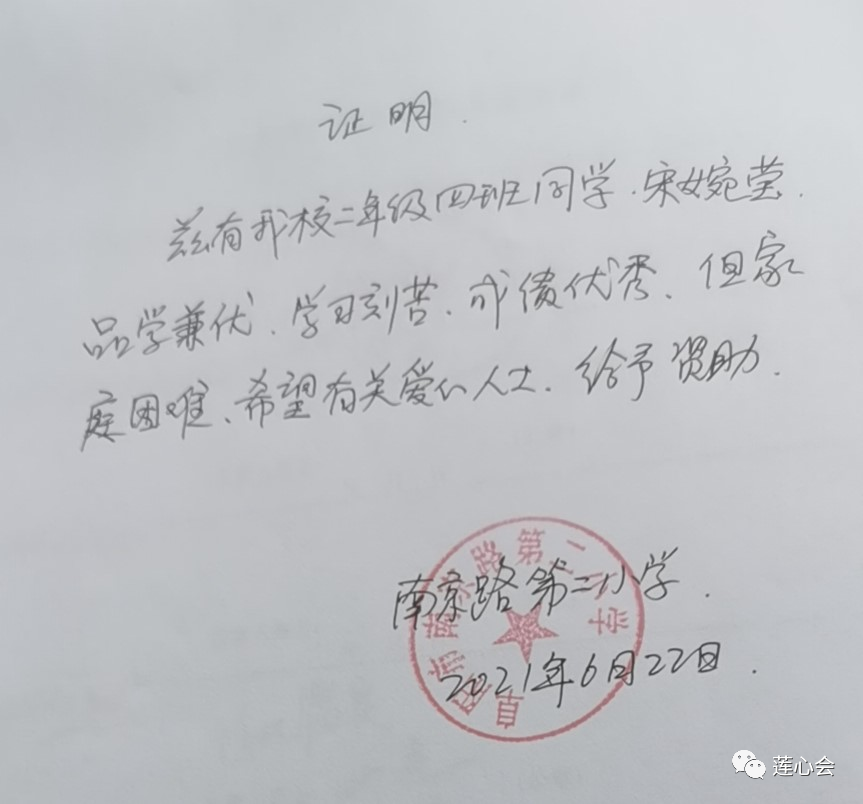 证明.
兹有我校二年级四班同学.宋婉莹.
品学兼优、学习刻苦、成绩优秀、但家
庭困难、希望有关爱心人士、给予资助.
南京路第二小学.
2021年6月22日.
市南京路第二小学
莲心会